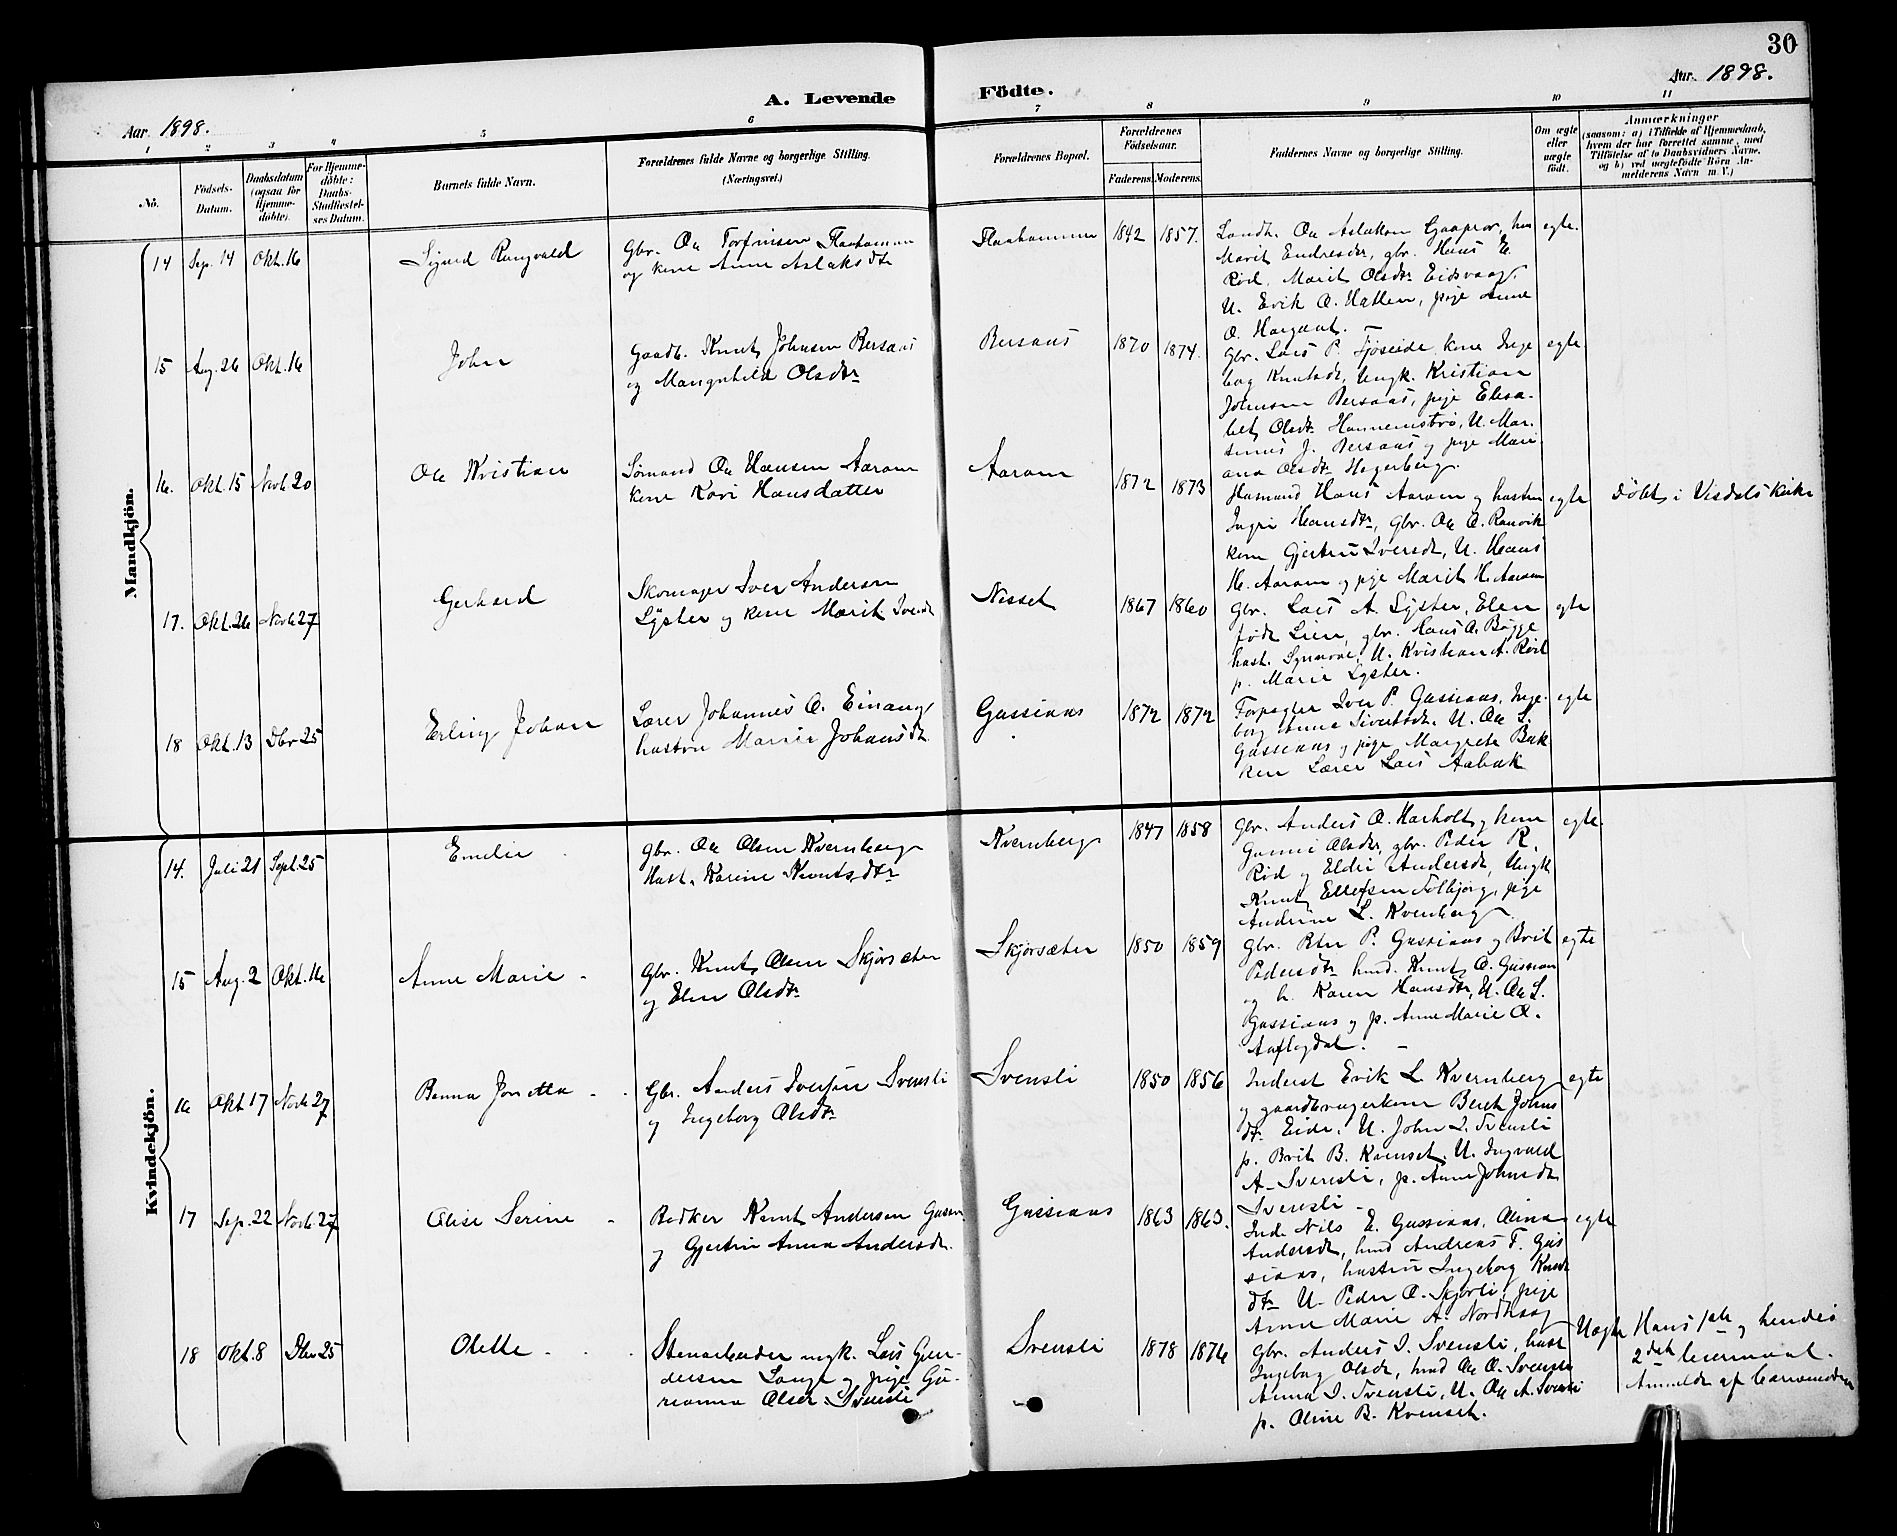 30
A. Levende Födte.
Aar 1898.
Aar. 1898.
1 2 3 4 5 6 7 8 9 10 11
No.
Födsels-
Datum.
Daabsdatum
(ogsaa for
Hjemme-
døbte).
For Hjemme-
døbte:
Daabs-
Stadfæstel-
ses Datum.
Barnets fulde Navn.
Forældrenes fulde Navne og borgerlige Stilling.
(Næringsvei.)
Forældrenes Bopæl.
Forældrenes
Födselsaar.
Faderens. Moderens.
Faddernes Navne og borgerlige Stilling.
Om ægte
eller
uægte
født.
Anmærkninger
(saasom: a) i Tilfælde af Hjemmedaab,
hvem der har forrettet samme, med
Tilföielse af to Daabsvidners Navne,
og b) ved uægtefødte Börn An-
melderens Navn m. V.)
Mandkjön.
14 Sep. 14 Okt. 16
Sigurd Rangvald
Gbr. Ole Torfinsen Flaahammer
og kone Anne Aslaksdtr
Flaahammer
1842 1857.
Landh. Ole Aslaksen Gaaprør, hu
Marit Endresdr, gbr. Hans E.
Rød, Marit Olsdtr Eidsvaag.
U. Erik O. Hatlen, pige Anne
O.
egte.
15 Aug. 26 Okt. 16
John
Gaardb. Knut Johnsen Bersaas
og Mangnhild Olsdtr
Bersaas
1870 1874.
Gbr. Lars P. Tjøseide kone Inge
borg Knutsdr, Ungk. Kristian
Johnsen Bersaas, pige Elisa-
bet Olsdtr U. Mar-
tinus J. Bersaas og pige Mari
ana Olsdtr Hegerberg.
egte
16. Okt. 15 Novb 20
Ole Kristian
Sømand Ole Hansen Aaram
kone Kari Hansdatter
Aaram
1872 1873
Husmand Hans Aaram og hustru
Ingri Hansdtr, gbr. Ole O. Ranvik
kone Gjertru Iversdt, U. Hans
H. Aaram og pige Marit H. Aaram
egte
Døbt i Visdals kirke
17. Okt. 26 Novb 27
Gerhard
Skomager Iver Andersen
Lyster og kone Marit Iversdt
Nesset
1867 1860
Gbr. Lars A. Lyster, Elen
født Lien, gbr. Hans A. Bugge
hust. Synnøve, U. Kristian A. Rød
p. Marie Lyster.
egte
18 Okt. 13 Dbr 25
Erling Johan
Lærer Johannes O. Einang
hustru Marie Johansdt.
Gussiaas
1872 1872
Forpagter Iver P. Gussiaas, Inge-
borg Anna Sivertsdt. U. Ole L.
Gussiaas og pige Margrete Bak
ken Lærer Lars Aabak
egte
Kvindekjön.
14. Juli 21 Sept. 25
Emelie
Gbr. Ole Olsen Kvernberg
Hust. Karine Knutsdtr
Kvernberg
1847 1858
Gbr. Anders O. Harholt og kone
Gunni Olsdtr, gbr. Peder R.
Rød og Eldri Andersdt, Ungk
Knut Ellefsen Tolbjørg, pige
Andrine L. Kvernberg
egte.
15 Aug. 2 Okt. 16
Anne Marie -
Gbr. Knut Olsen Skjørsæter
og Elen Olsdtr
Skjørsæter
1850 1859
Gbr. Peter P. Gussiaas og Brit
Pedersdtr husd. Knut O. Gussiaas
og h. Karen Hansdtr, U. Ole L.
Gussiaas og p. Anne Marie O.
egte
16 Okt 17 Novb 27
Benna Jonetta - -
Gbr. Anders Iversen Svensli
og Ingeborg Olsdtr
Svensli
1850 1856
Inderst Erik L. Kvernberg
og gaardbrugerkone Beret Johns
dtr Eide. U. John I. Svensli
p. Brit B. Kvinset. U. Ingvald
A. Svensli, p. Anne Johnsdt
Svensli -
egte
17 Sep. 22 Novb 27
Olise Serine -
Bødker Knut Andersen Gussi
og Gjertru Anna Andersdt.
Gussiaas
1863 1863.
Ind. Nils E. Gussiaas, Olina
Andersdt, husd Andreas T. Gus
siaas, hustru Ingeborg Knut
dtr U. Peder O. Skjørli, pige
Anne Marie A. Nordhaug
egte
18 Okt. 8 Dbr 25
Olette - - -
Stenarbeider ungk. Lars Gun-
dersen Lange og pige Gu-
rianna Olsdr. Svensli
Svensli
1878 1876
Gbr. Anders I. Svensli, hust
Ingeborg Olsdr, husd Ole O. Svensli
Anna I. Svensli, U. Ole A. Svensli
p. Oline B. Kvenset.
Uægte
Hans 1ste og hendes
2det leiermaal.
Anmeldt af barnemoderen